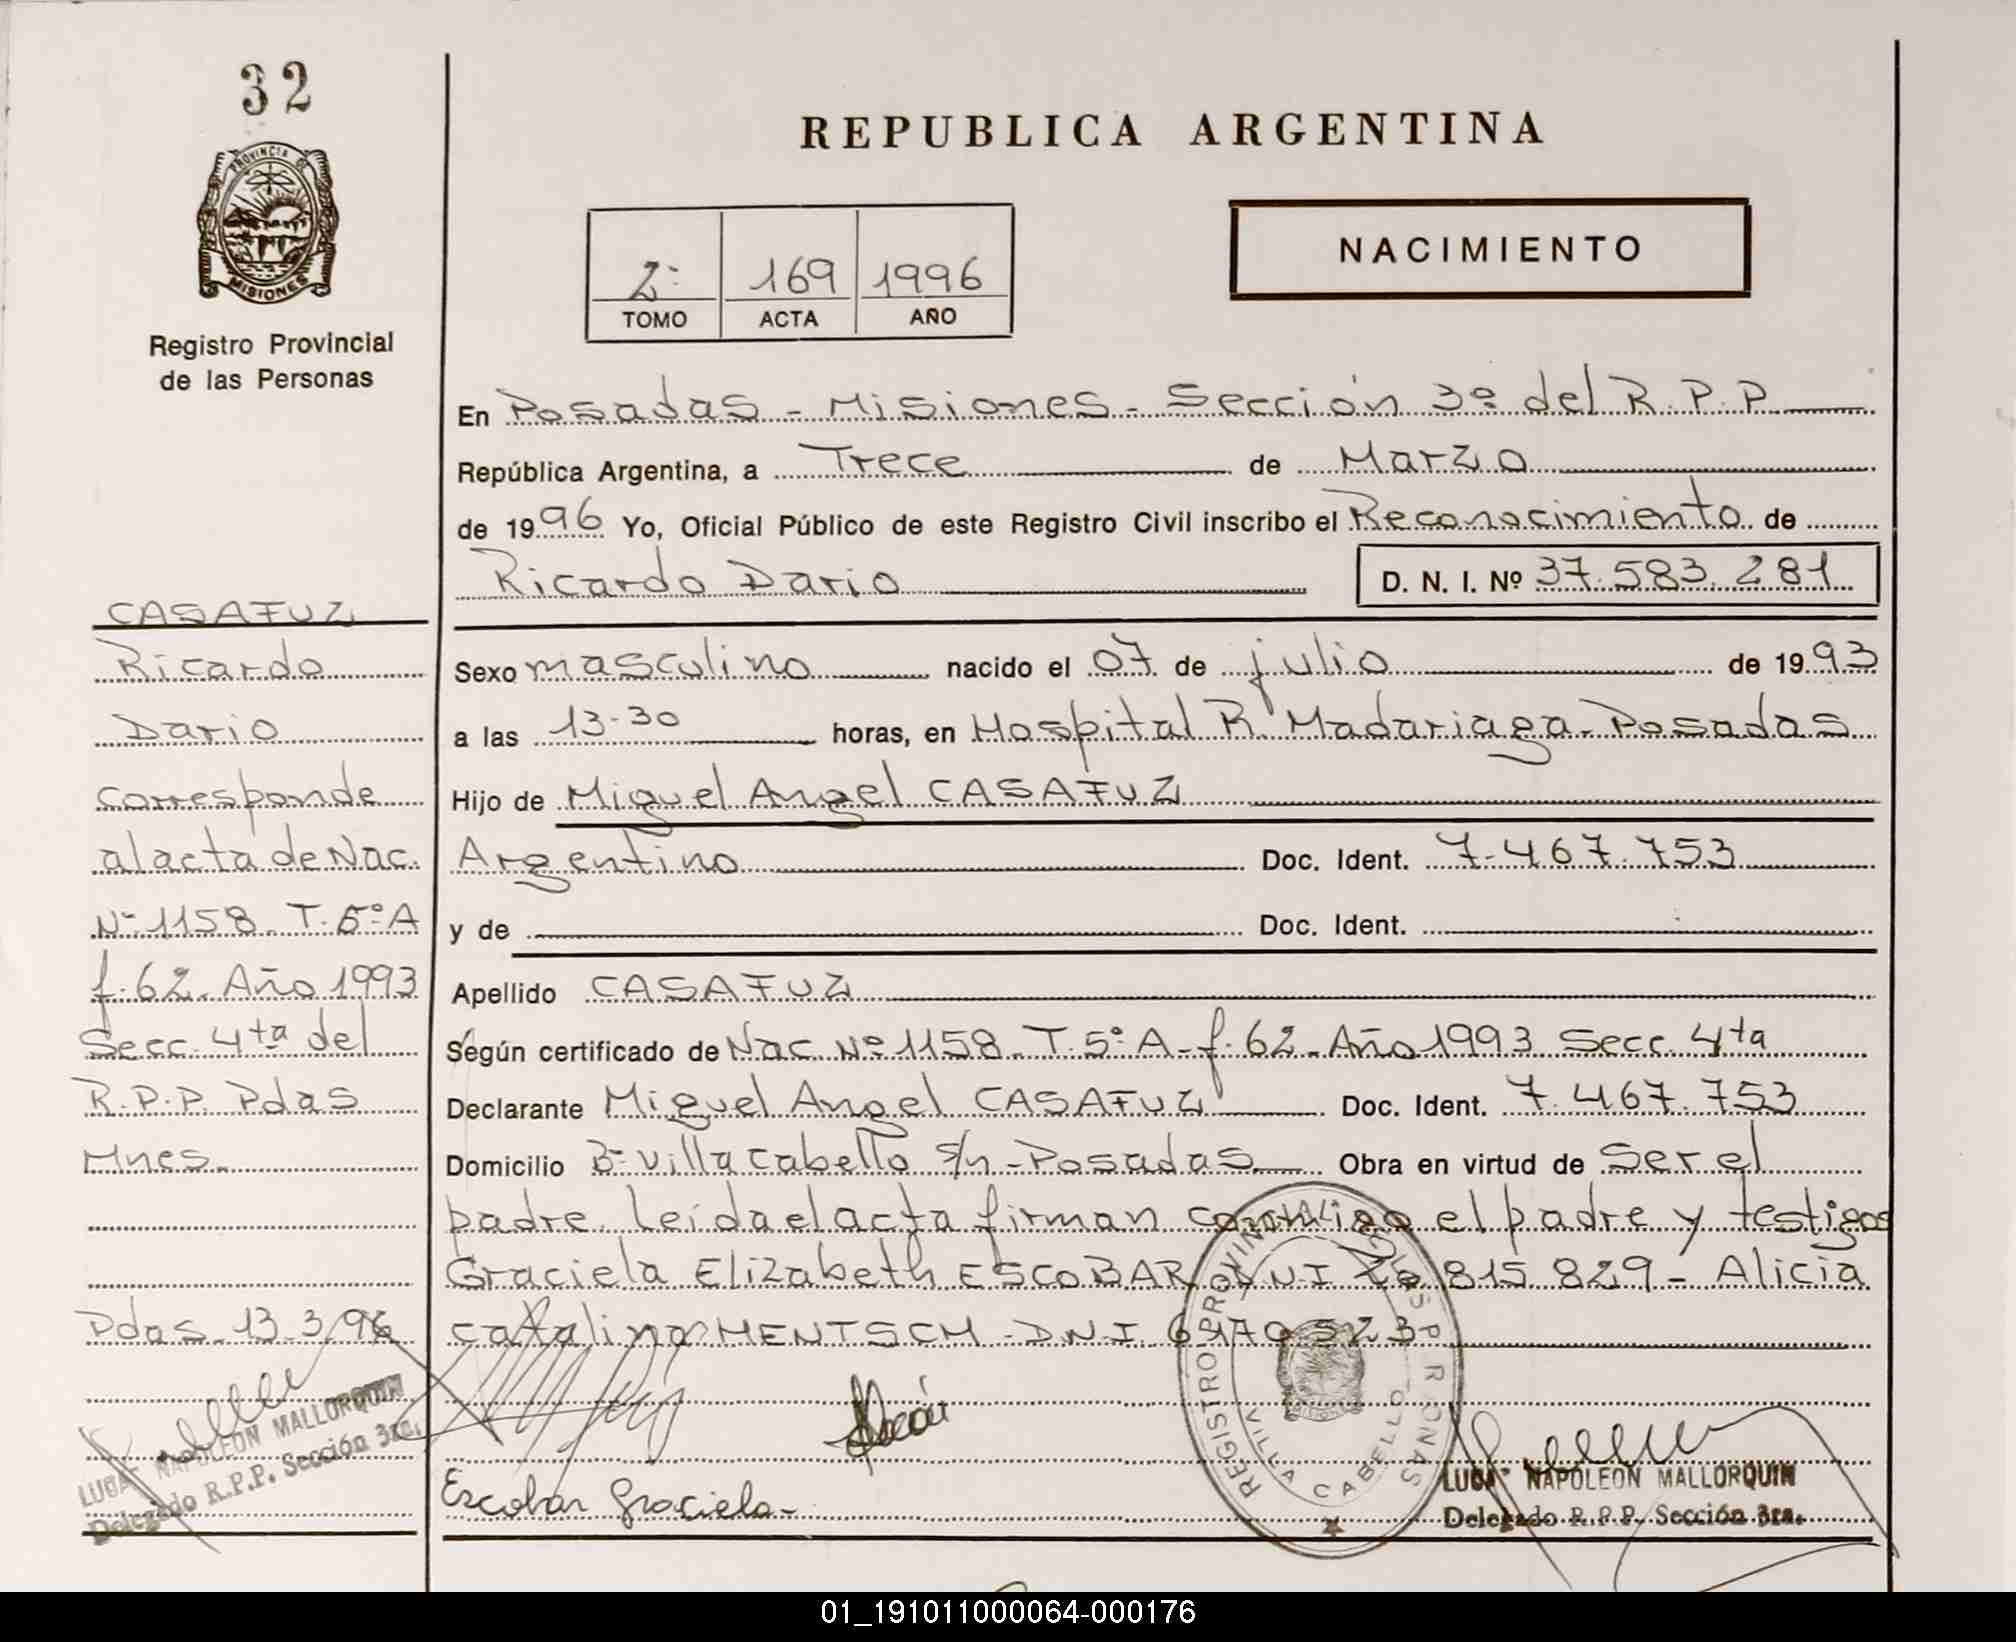 32
PROVINCIA DE
MISIONES
Registro Provincial
de las Personas
REPUBLICA ARGENTINA
NACIMIENTO
2º 169 1996
TOMO ACTA AÑO
En Posadas - Misiones - Sección 3º del R.P.P.
República Argentina, a Trece de Marzo
de 1996 Yo, Oficial Público de este Registro Civil inscribo el Reconocimiento de
Ricardo Dario D. N. I. Nº 37.583.281
Sexo masculino nacido el 07 de julio de 1993
a las 13-30 horas, en Hospital R. Madariaga-Posadas
Hijo de Miguel Angel CASAFUZ
Argentino Doc. Ident. 7.467.753
y de Doc. Ident.
Apellido CASAFUZ
Según certificado de Nac. Nº 1158. T. 5º A - f. 62 - Año 1993 Secc. 4ta
Declarante Miguel Angel CASAFUZ Doc. Ident. 7.467.753
Domicilio Bº Villa Cabello s/n - Posadas Obra en virtud de Ser el
padre. Leida el acta firman conmigo el padre y testigos
Graciela Elizabeth ESCOBAR DNI 815.829 - Alicia
Catalina HENTSCH - D.N.I.
Escobar Graciela-
REGISTRO PROVINCIAL DE LAS PERSONAS
VILLA CABELLO
NAPOLEON MALLORQUIN
Delegado R.P.P. Sección 3ra.
CASAFUZ
Ricardo
Dario
Corresponde
al acta de Nac.
Nº 1158. T. 5º A
f. 62. Año 1993
Secc. 4ta del
R.P.P. Pdas
Mnes.
Pdas. 13.3.96
NAPOLEON MALLORQUIN
Delegado R.P.P. Sección 3ra.
01_191011000064-000176